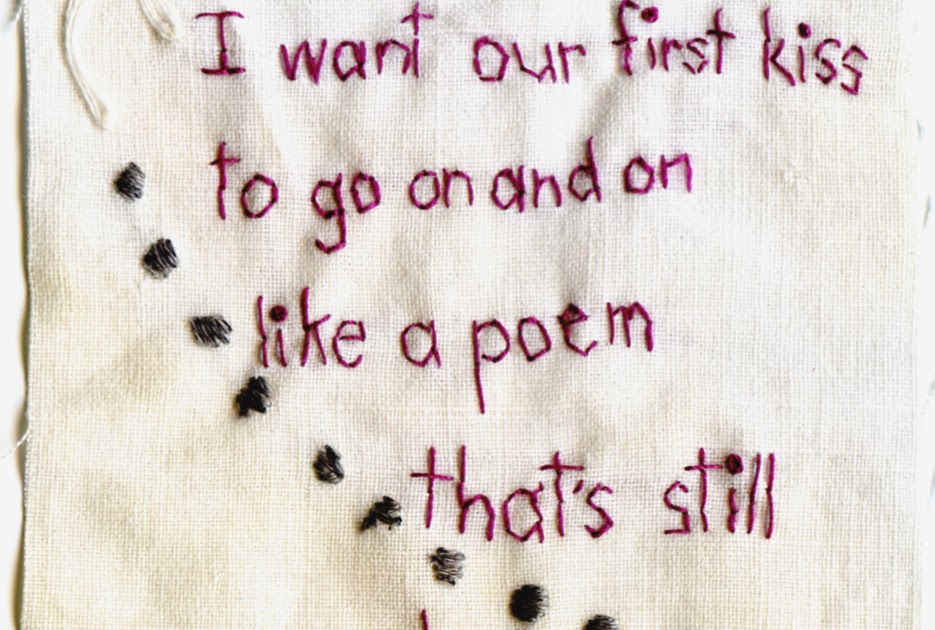 I want our first kiss
to go on and on
like a poem
that's still